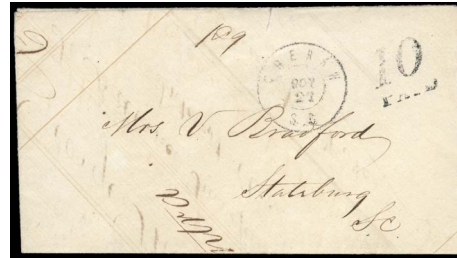 189
CHERAW
NOV
27
S.C.
10
PAID
Mrs. V Bradford
Stateburg
S.C.